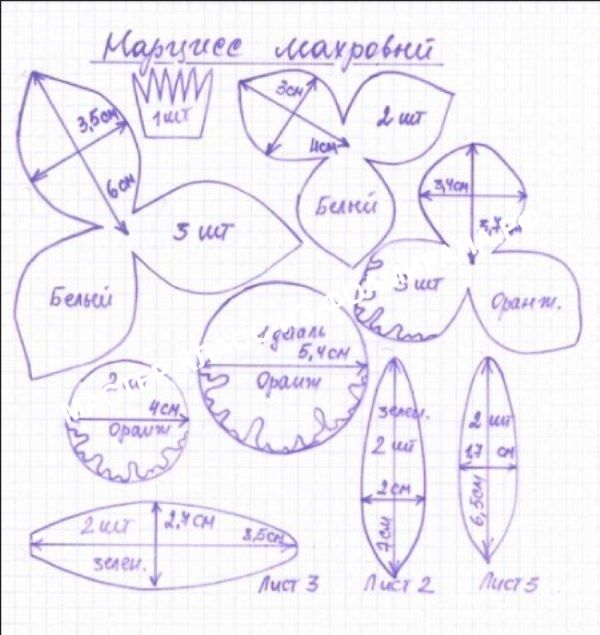 Нарцисс махровый
1 шт
3,5см
6см
3 шт
Белый
3см
4см
2 шт
Белый
3,4см
3,7
3 шт
Оранж.
1 деталь
5,4см
Оранж
2
4см
Оранж
зелен.
2 шт
2см
7см
2 шт
1,7 см
6,5см
2 шт
2,7см
8,5см
зелен.
Лист 3
Лист 2
Лист 5